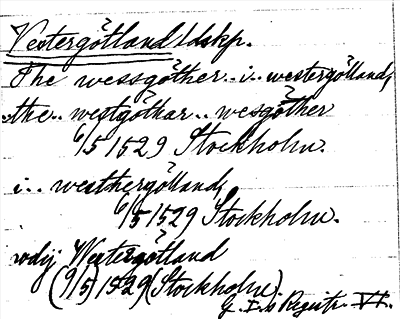 Vestergötland ldskp.
The wessgöther i westergötland,
the westgöthar wesgöther
6/5 1529 Stockholm.
i westhergötland,
6/5 1529 Stockholm.
wdij Westergötland
(9/5) 1529 (Stockholm).
G. I:s Registr. VI.